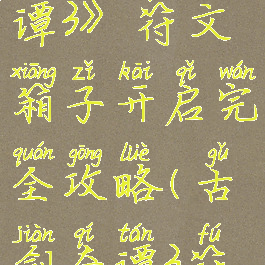 谭3》符文
xiāng zǐ kāi qǐ wán
箱子开启完
quán gōng lüè gǔ
全攻略(古
jiàn qí tán fú
剑奇谭3符